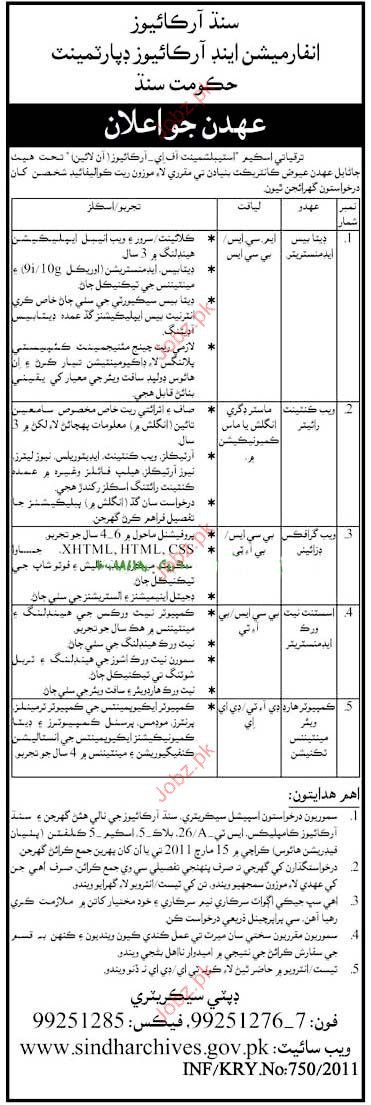 سنڌ آرڪائيوز
انفارميشن اينڊ آرڪائيوز ڊپارٽمينٽ
حڪومت سنڌ
عهدن جو اعلان
ترقياتي اسڪيم "اسٽيبلشمينٽ آف اِي۔ آرڪائيوز (آن لائين)" تحت هيٺ
ڄاڻايل عهدن عيوض ڪانٽريڪٽ بنيادن تي مقرري لاءِ موزون ريت ڪواليفائيڊ شخصن کان
درخواستون گهرائجن ٿيون.
نمبر شمار
عهدو
لياقت
تجربو/اسڪلز
1.
ڊيٽا بيس
ايڊمنسٽريٽر
ايم.سي.ايس/
بي سي ايس
ڪلائينٽ/سرور ۽ ويب انيبل ايپليڪيشن
هينڊلنگ ۾ 3 سال.
ڊيٽابيس، ايڊمنسٽريشن (اوريڪل 9i/10g) ۽
مينٽيننس جي ٽيڪنيڪل ڄاڻ.
ڊيٽا بيس سيڪيورٽي جي سٺي ڄاڻ خاص ڪري
انٽرنيٽ بيس ايپليڪيشنز گڏ عمده ڊيٽابيس
آڊيٽنگ.
لازمي ريت چينج مئنيجمينٽ ڪئپيسٽي
پلاننگس لاءِ ڊاڪيومينٽيشن تيار ڪرڻ ۽ اِن
هائوس ڊولپڊ سافٽ ويئر جي معيار کي يقيني
بنائڻ قابل هجي.
2.
ويب ڪنٽينٽ
رائيٽر
ماسٽر ڊگري
انگلش يا ماس
ڪميونيڪيشن
۾.
صاف ۽ اثرائتي ريت خاص مخصوص سامعين
تائين (انگلش ۾) معلومات پهچائڻ لاءِ لکڻ ۾ 3
سال.
آرٽيڪلز، ويب ڪنٽينٽ، ايڊيٽوريلس، نيوز ليٽرز،
نيوز آرٽيڪلز، هيلپ فائلز وغيره ۾ عمده
ڪنٽينٽ رائٽنگ اسڪلز رکندڙ هجي.
درخواست سان گڏ (انگلش ۾) پبليڪيشنز جا
تفصيل فراهم ڪرڻ گهرجن.
3.
ويب گرافڪس
ڊزائينر
بي سي ايس/
بي آءِ ٽي
پروفيشنل ماحول ۾ 4_6 سال جو تجربو.
XHTML, HTML, CSS،
فليش ۽ فوٽو شاپ جي
ٽيڪنيڪل ڄاڻ.
ڊجيٽل اينيميشنز ۽ السٽريشنز جي سٺي ڄاڻ.
4.
اسسٽنٽ نيٽ
ورڪ
ايڊمنسٽريٽر
بي سي ايس/بي
آءِ ٽي
ڪمپيوٽر نيٽ ورڪس جي هينڊلنگ ۽
مينٽيننس ۾ هڪ سال جو تجربو.
نيٽ ورڪ هينڊلنگ جي سٺي ڄاڻ.
سمورن نيٽ ورڪ اشوز جي هينڊلنگ ۽ ٽربل
شوٽنگ تي ٽيڪنيڪل ڄاڻ.
نيٽ ورڪ هارڊويئر ۽ سافٽ ويئر جي سٺي ڄاڻ.
5.
ڪمپيوٽر هارڊ
ويئر
مينٽيننس
ٽيڪنيشن
ڊي آءِ ٽي/ڊي اي
اِي
ڪمپيوٽر ايڪوپمينٽس جي ڪمپيوٽر ٽرمينلز
پرنٽرز، موڊمس، پرسنل ڪمپيوٽرز ۽ ڊيٽا
ڪميونيڪيشنز ايڪوپمينٽس جي انسٽاليشن
ڪنفيگيوريشن ۽ مينٽيننس ۾ 4 سال جو تجربو.
اهم هدايتون:
1. سموريون درخواستون اسپيشل سيڪريٽري، سنڌ آرڪائيوز جي نالي هئڻ گهرجن ۽ سنڌ
آرڪائيوز ڪامپليڪس، ايس ٽي_26/A، بلاڪ_5، اسڪيم_5 ڪلفٽن
فيڊريشن هائوس) ڪراچي ۾ 15 مارچ 2011 تي يا ان کان پهرين جمع ڪرائڻ گهرجن.
2. درخواستگذارن کي گهرجي ته صرف پنهنجي تفصيلي سي وي جمع ڪرائن. صرف اهي جن
کي عهدي لاءِ موزون سمجهيو ويندو، تن کي ٽيسٽ/انٽرويو لاءِ گهرايو ويندو
3. اهي سڀ جيڪي اڳواٽ سرڪاري نيم سرڪاري ۽ خود مختيار کاتن ۾ ملازمت ڪري
رهيا آهن، سي پراپرچينل ذريعي درخواست ڪن.
4. سموريون مقرريون سختي سان ميرٽ تي عمل ڪندي ڪيون وينديون ۽ ڪنهن به قسم
جي سفارش ڪرائڻ جي نتيجي ۾ اميدوار نااهل بڻجي ويندو.
5. ٽيسٽ/انٽرويو ۾ حاضر ٿيڻ لاءِ ڪو به ٽي اي/ڊي اي نه ڏنو ويندو.
ڊپٽي سيڪريٽري
فون: 7_99251276، فيڪس: 99251285
ويب سائيٽ: www.sindharchives.gov.pk
INF/KRY.No:750/2011
Jobz.pk